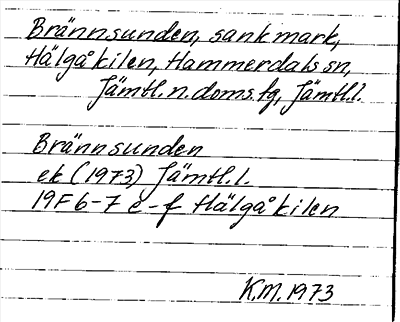 Brännsunden, sank mark,
Hälgåkilen, Hammerdals sn,
Jämtl. n. doms. fg, Jämtl. l.
Brännsunden
ek (1973) Jämtl. l.
19F 6-7 e-f Hälgåkilen
K.M. 1973